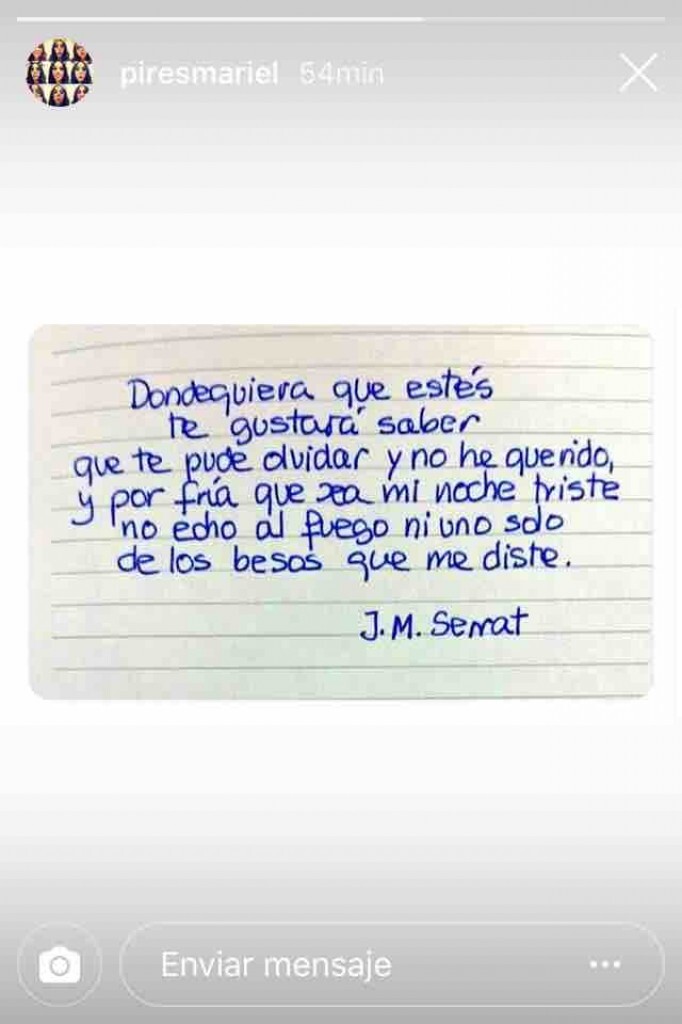 piresmariel 54min
Dondequiera que estés
te gustará saber
que te pude olvidar y no he querido,
y por fría que sea mi noche triste
no echo al fuego ni uno solo
de los besos que me diste.
J.M. Serrat
Enviar mensaje